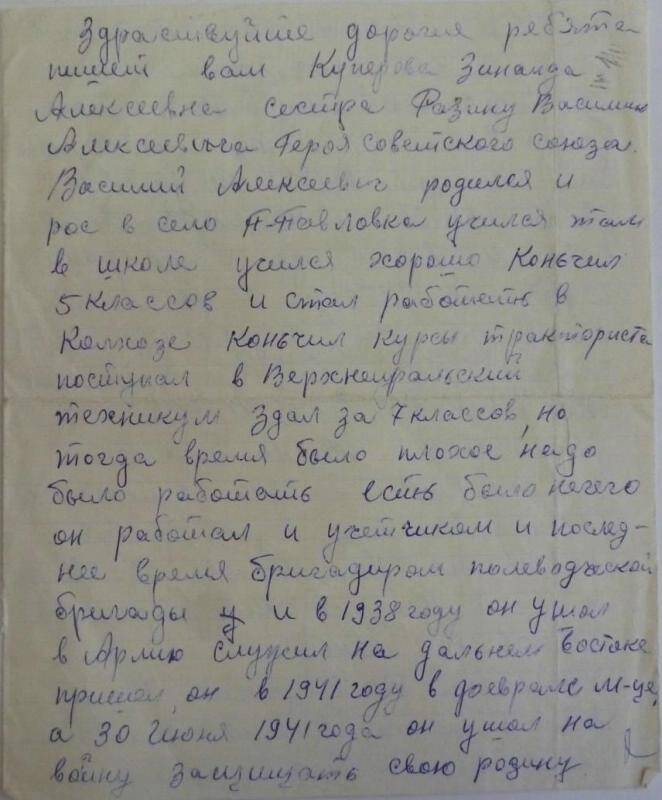 Здраствуйте дорогие ребята
пишет вам Куперова Зинаида
Алексеевна сестра Фазину Василию
Алексеевича Героя советского союза.
Василий Алексеевич родился и
рос в село П-Павловка учился там
в школе учился хорошо Коньчил
5 классов и стал работать в
Колхозе Коньчил курсы тракториста
поступал в Верхнеуральский
техникум здал за 7 классов, но
тогда время было плохое надо
было работать есть было нечего
он работал и учетчиком и послед-
нее время бригадиром полеводческой
бригады и в 1938 году он ушол
в Армию служил на дальнем востоке
пришол он в 1941 году в феврале м-це,
а 30 Июня 1941 года он ушол на
войну защищать свою родину